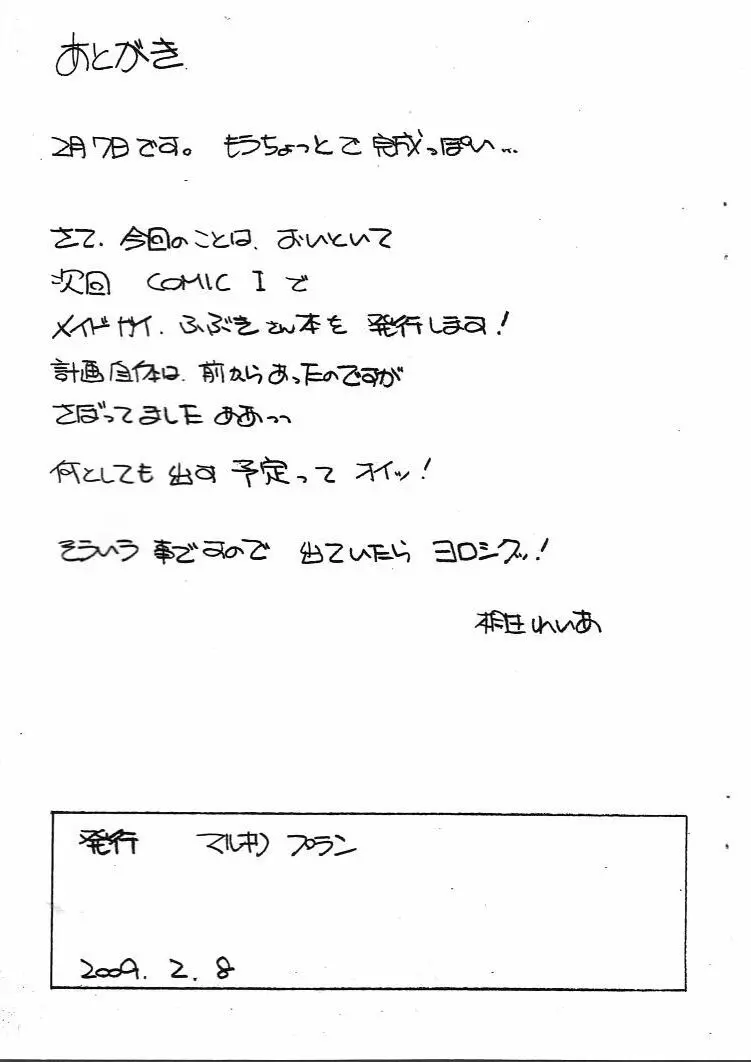 あとがき
2月7日です。もうちょっとで完成っぽい...
さて、今回のことは、おいといて
次回 COMIC 1で
メイドガイ、ふぶきさん本を発行します!
計画自体は、前からあったのですが
さぼってましたああっっ
何としても出す予定って オイッ!
そういう事ですので 出ていたら ヨロシクッ!
れいあ
発行 マルキ プラン
2009. 2. 8